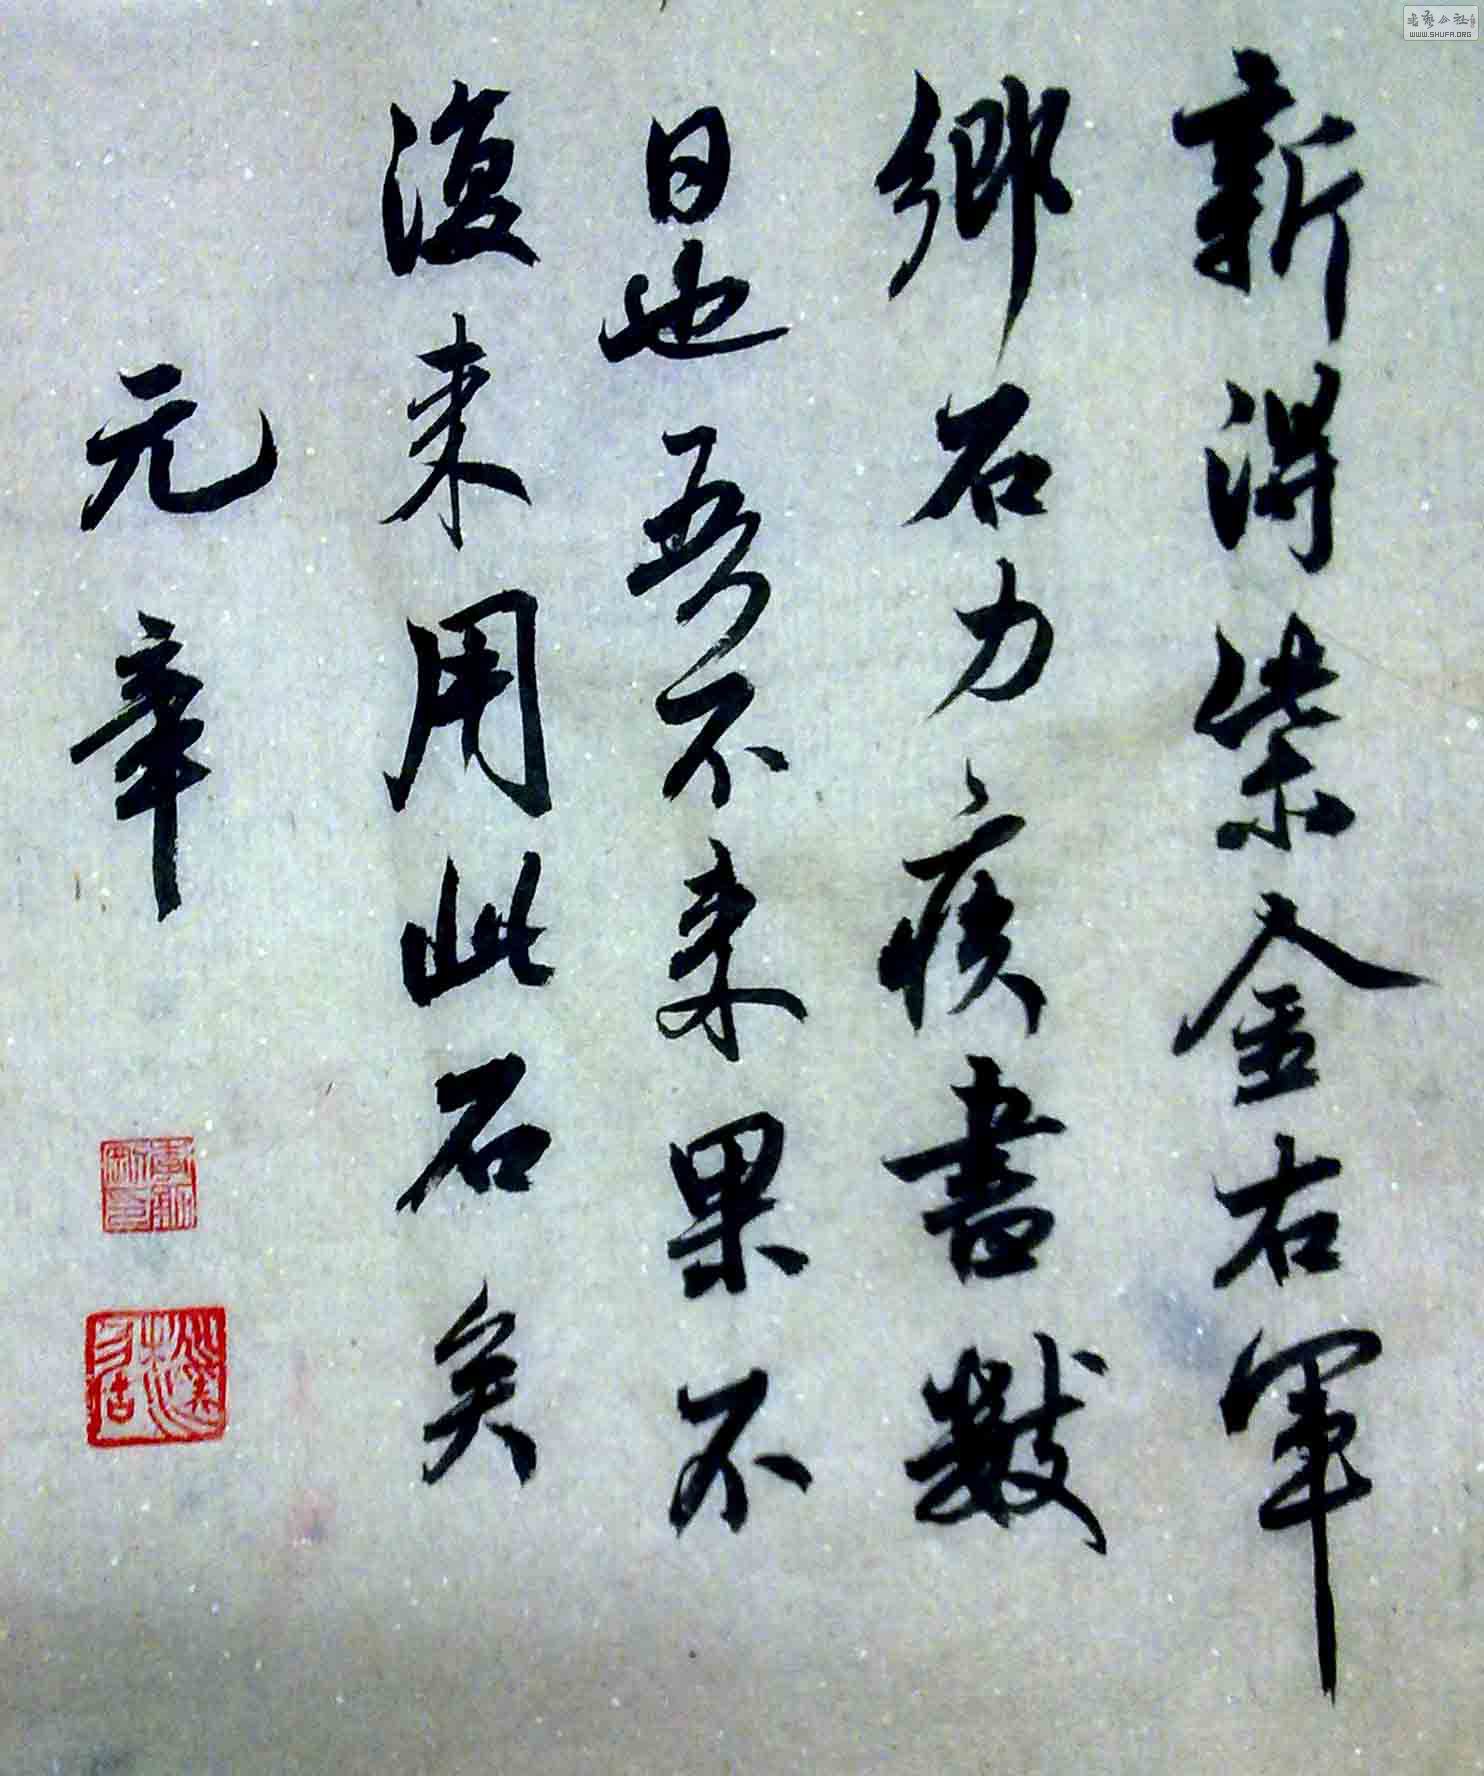 新得紫金右軍
鄉石力疾書數
日也吾不来果不
復来用此石矣
元章
WWW.SHUFA.ORG